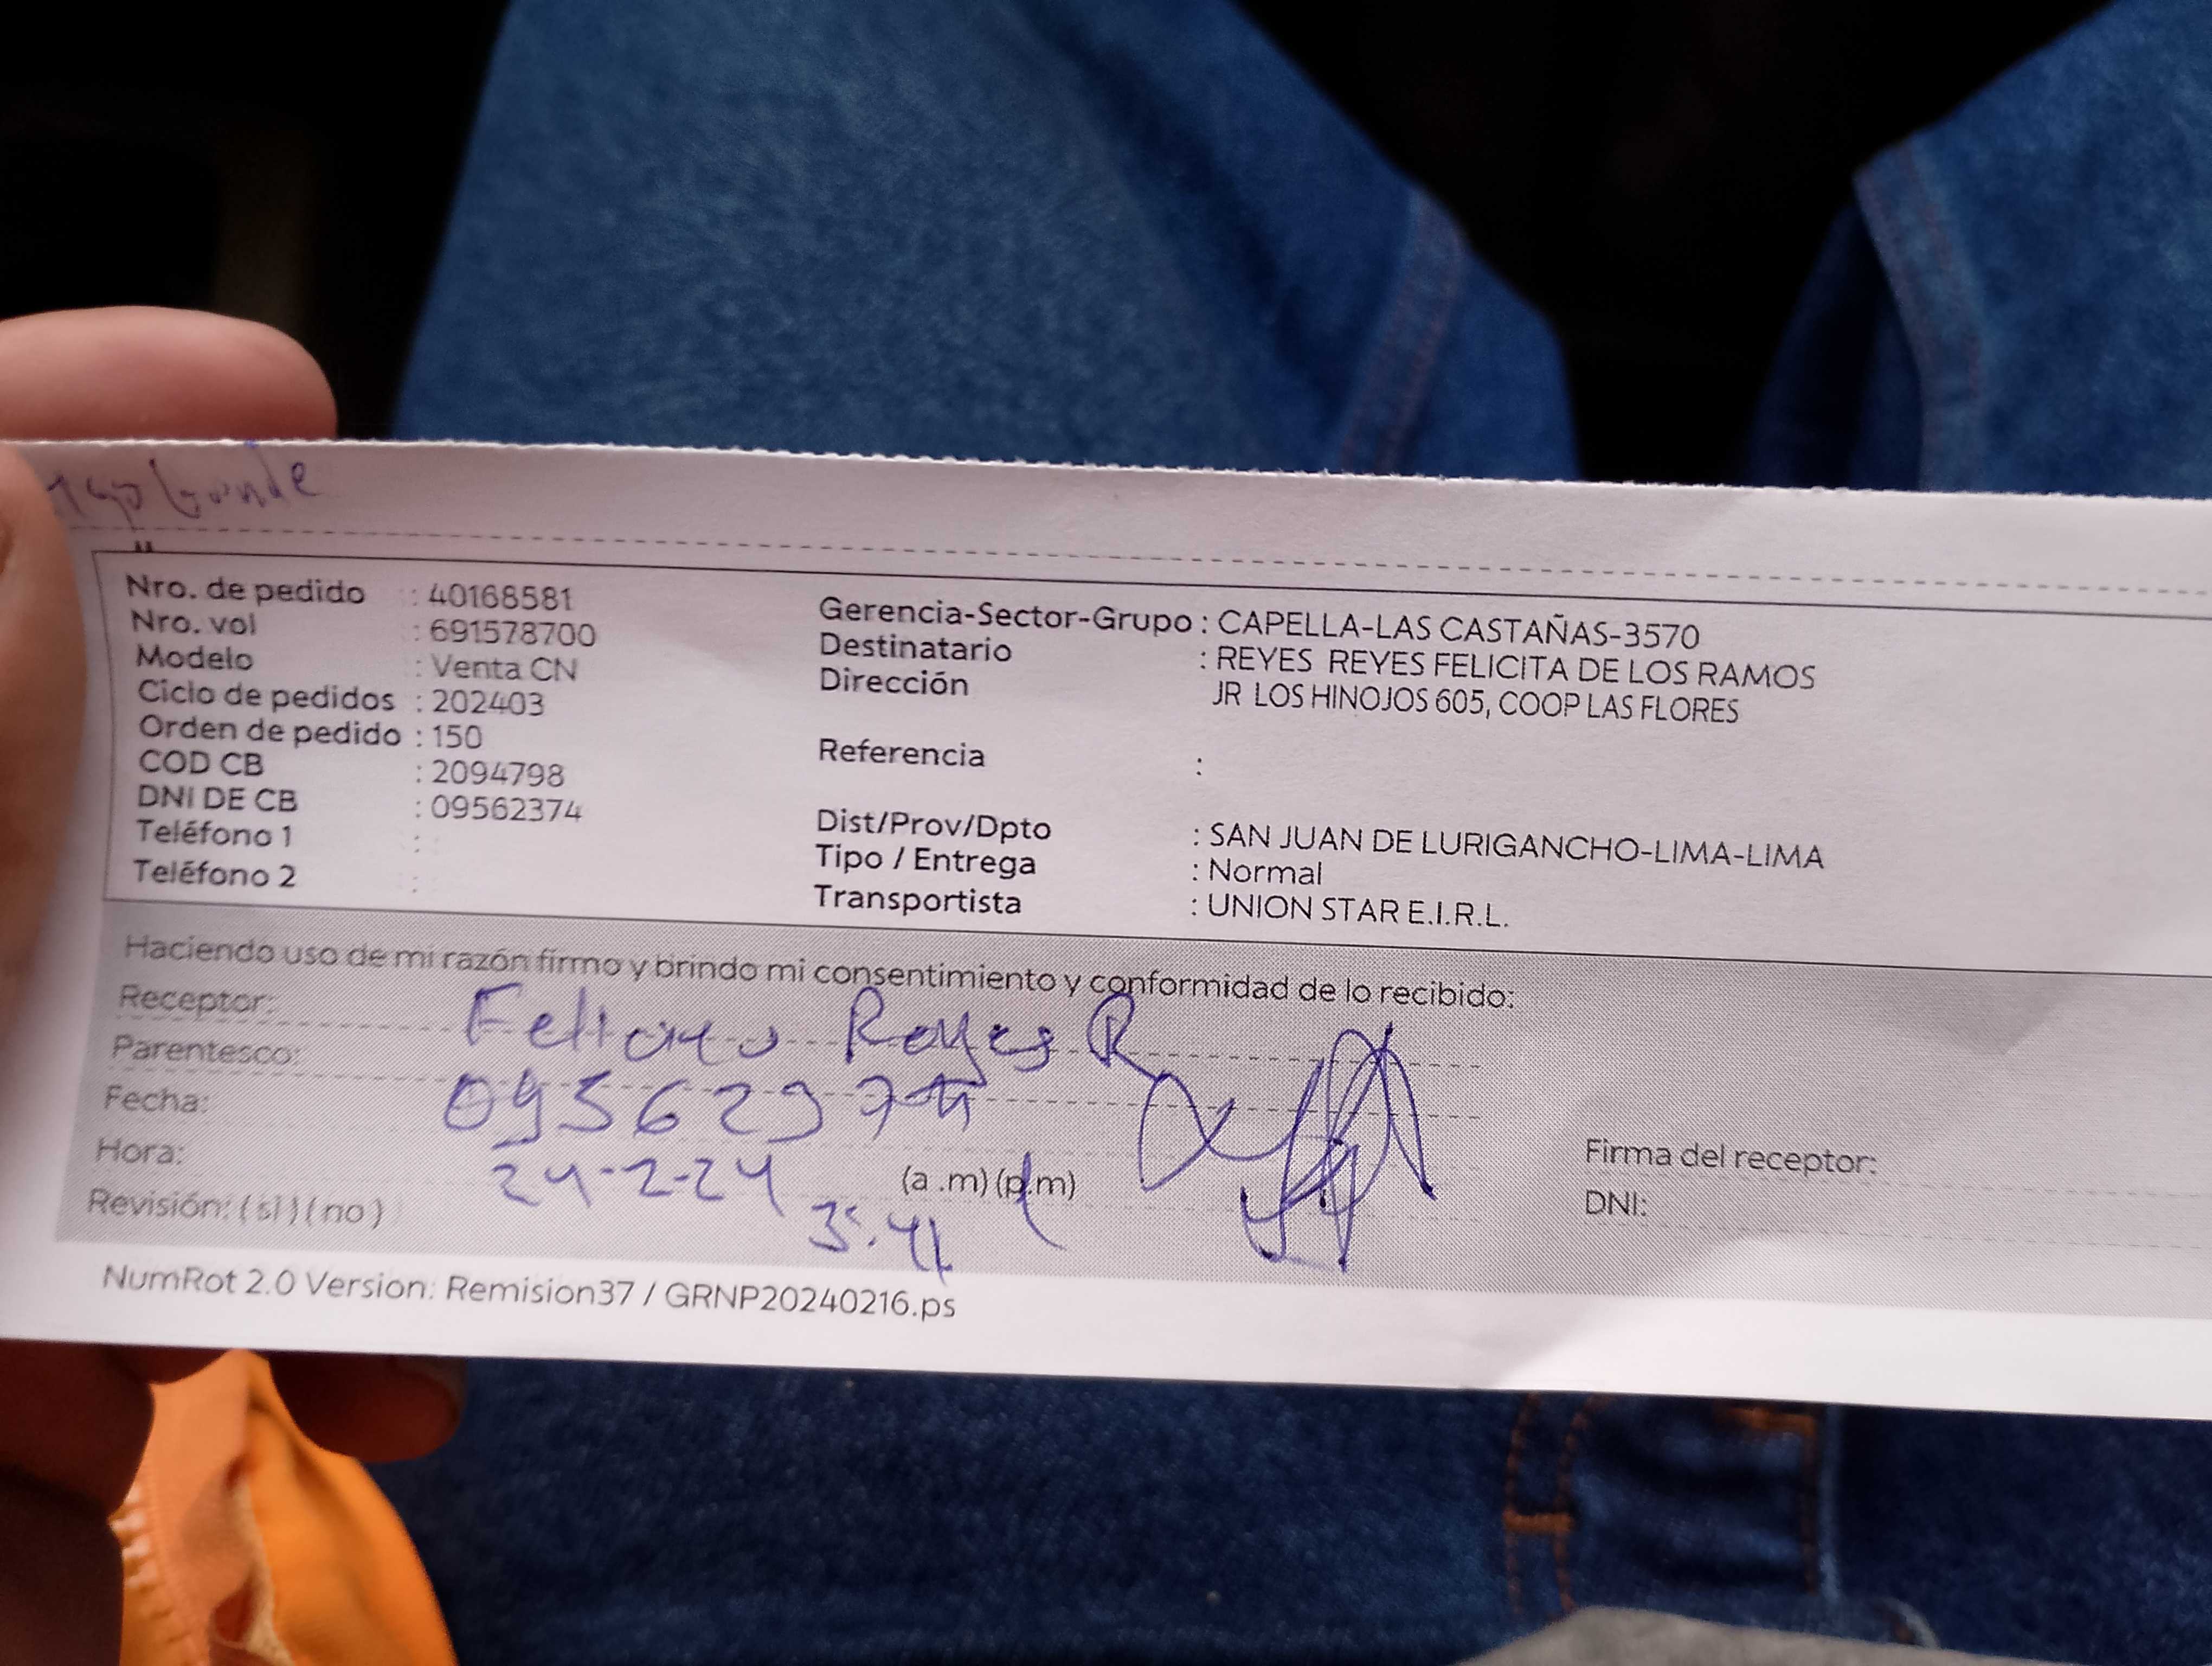 Nro. de pedido : 40168581
Nro. vol : 691578700
Modelo : Venta CN
Ciclo de pedidos : 202403
Orden de pedido : 150
COD CB : 2094798
DNI DE CB : 09562374
Teléfono 1 :
Teléfono 2 :
Gerencia-Sector-Grupo : CAPELLA-LAS CASTAÑAS-3570
Destinatario : REYES REYES FELICITA DE LOS RAMOS
Dirección JR LOS HINOJOS 605, COOP LAS FLORES
Referencia :
Dist/Prov/Dpto : SAN JUAN DE LURIGANCHO-LIMA-LIMA
Tipo / Entrega : Normal
Transportista : UNION STAR E.I.R.L.
Haciendo uso de mi razón firmo y brindo mi consentimiento y conformidad de lo recibido:
Receptor: Reyes R
Parentesco:
Fecha:
Hora: 24-2-24 (a .m) (p.m)
Revisión: (si) (no) 3:41
Firma del receptor:
DNI:
NumRot 2.0 Version: Remision37 / GRNP20240216.ps